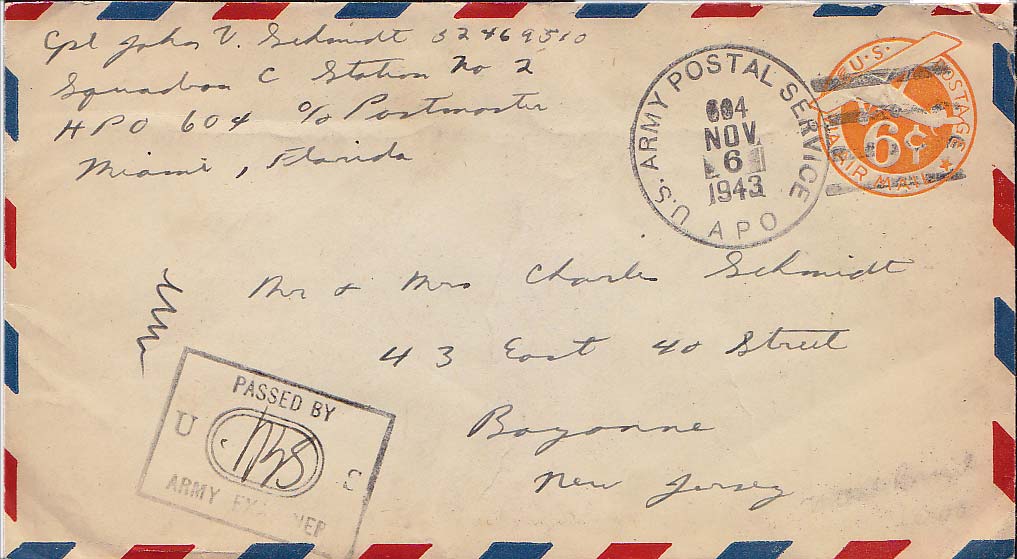 Cpl John V. Schmidt 32469510
Squadron C Station No 2
APO 604 c/o Postmaster
Miami, Florida
U.S. ARMY POSTAL SERVICE
604
NOV
6
1943
APO
U.S. POSTAGE
6¢
AIR MAIL
Mr & Mrs Charles Schmidt
43 East 40 Street
Bayonne
New Jersey
PASSED BY
U S
ARMY EXAMINER